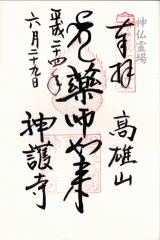 神仏霊場
奉拝
高雄山
薬師如来
平成二十四年
六月二十九日
神護寺